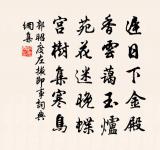 遲日下金殿
香雲藹玉爐
苑花迷晚蝶
宮樹集寒烏
郭昭度左掖即事詞典
網集